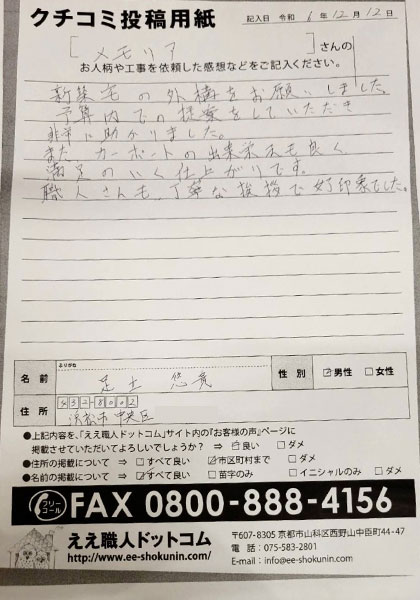 クチコミ投稿用紙
記入日 令和 6年 12月 12日
[メモリア]さんの
お人柄や工事を依頼した感想などをご記入ください。
新築宅の外構をお願いしました。
予算内での提案をしていただき
非常に助かりました。
また カーポートの出来栄えも良く
満足のいく仕上がりです。
職人さんも、丁寧な挨拶で好印象でした。
ふりがな
名前 足立 悠 性別 ☑男性 □女性
住所 432-8002
浜松市中央区
●上記内容を、「ええ職人ドットコム」サイト内の『お客様の声』ページに
掲載させていただいてよろしいでしょうか? ⇒ ☑良い □ダメ
●住所の掲載について ⇒ □すべて良い ☑市区町村まで □ダメ
●名前の掲載について ⇒ ☑すべて良い □苗字のみ □イニシャルのみ □ダメ
フリーコール FAX 0800-888-4156
ええ職人ドットコム
http://www.ee-shokunin.com/
〒607-8305 京都市山科区西野山中臣町44-47
電話:075-583-2801
E-mail:info@ee-shokunin.com